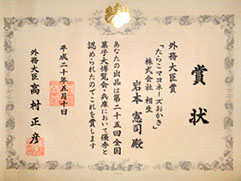 賞状
外務大臣賞
「たらこマヨネーズおかき」
株式会社 相生
岩本憲司殿
あなたの出品は第二十五回全国
菓子大博覧会・兵庫において優秀と
認められたのでこれを賞します
平成二十年五月十日
外務大臣 高村正彦